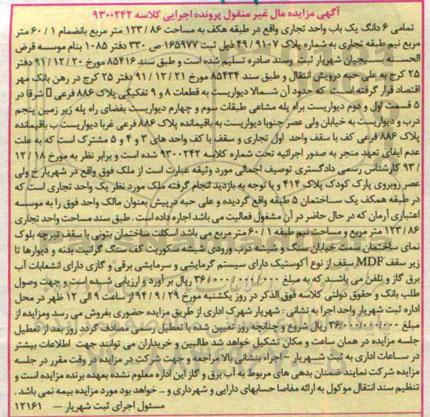 آگهی مزایده مال غیر منقول پرونده اجرایی کلاسه ۹۳۰۰۲۴۲
تمامی ۶ دانگ یک باب واحد تجاری واقع در طبقه هکف به مساحت ۱۲۳/۸۶ متر مربع بانضمام ۶۰/۱ متر
مربع نیم طبقه تجاری به شماره پلاک ۴۹/۹۱۰۷ ذیل ثبت ۱۶۵۹۷۷ ص ۳۳۰ دفتر ۱۰۸۵ بنام موسسه قرض
الحسنه بسیجیان شهریار ثبت وسند صادره تسلیم شده است و طبق سند ۸۵۴۱۶ مورخ ۹۱/۱۲/۲۰ دفتر
۲۵ کرج به علی حبه درویش انتقال و طبق سند ۸۵۴۳۴ مورخ ۹۱/۱۲/۲۱ دفتر ۲۵ کرج در رهن بانک مهر
اقتصاد قرار گرفته است. که حدود آن شمالا دیواریست به قطعات ۸ و ۹ تفکیکی پلاک ۸۸۶ فرعی شرقا در
۵ قسمت اول و دوم دیواریست براه پله مشاعی طبقات سوم و چهارم دیواریست بفضای راه پله زیر زمین پنجم
درب و دیواریست به خیابان ولی عصر جنوبا دیواریست به باقیمانده پلاک ۸۸۶ فرعی غربا دیواریست ب باقیمانده
پلاک ۸۸۶ فرعی کف با سقف واحد اول تجاری و سقف با کف واحد های ۳ و ۴ و ۵ مشترک است که به علت
عدم ایفای تعهد منجر به صدور اجرائیه تحت شماره کلاسه ۹۳۰۰۲۴۲ شده است و برابر نظر به مورخ ۱۲/۱۸
/۹۳ کارشناس رسمی دادگستری توصیف اجمالی مورد وثیقه عبارت است از ملک فوق واقع در شهریار خ ولی
عصر روبروی پارک کودک پلاک ۴۱۴ و با توجه به بازدید انجام گرفته ملک مورد نظر یک واحد تجاری است که
در طبقه همکف یک ساختمان ۵ طبقه واقع گردیده و علی حبه درپیش بعنوان مالک واحد فوق را به موسسه
اعتباری آرمان که در حال حاضر در آن مشغول فعالیت می باشد اجاره داده است. طبق سند مساحت واحد تجاری
۱۲۳/۸۶ متر مربع و مساحت نیم طبقه ۶۰/۱ متر مربع می باشد اسکلت ساختمان بتونی با سقف تیرچه بلوک
نمای ساختمان سمت خیابان سنگ و شیشه درب ورودی شیشه سکوریت کف سنگ گرانیت بدنه و دیوارها تا
زیر سقف MDF سقف از نوع آکوستیک دارای سیستم گرمایشی و سرمایشی برقی و گازی دارای انشعابات آب
برق گاز و تلفن می باشند که به مبلغ ریال بر آورد و ارزیابی شده است و جهت وصول
طلب بانک و حقوق دولتی کلاسه فوق الذکر در روز یکشنبه مورخ ۹۴/۹/۲۹ از ساعت ۹ الی ۱۲ ظهر در محل
اداره ثبت شهریار واحد اجرا به نشانی: شهریار شهرک اداری از طریق مزایده حضوری بفروش می رسد ومزایده از
مبلغ ریال شروع و چنانچه روز تعیین شده با تعطیل رسمی مصادف گردد روز بعد از تعطیل
جلسه مزایده در همان ساعت و مکان تشکیل خواهد شد طالبین و خریداران می توانند جهت اطلاعات بیشتر
در ساعات اداری به ثبت شهریار - اجراء بنشانی بالا مراجعه و جهت شرکت در مزایده در وقت مقرر در جلسه
مزایده شرکت نمایند ضمنان بدهی های مربوط به آب برق و گاز این اداره معلوم نشده بعهده برنده مزایده است و
تنظیم سند انتقال موکول به ارائه مفاصا حسابهای دارایی و شهرداری و... خواهد بود مورد مزایده بیمه نمی باشد.
مسئول اجرای ثبت شهریار – ۱۲۱۶۱